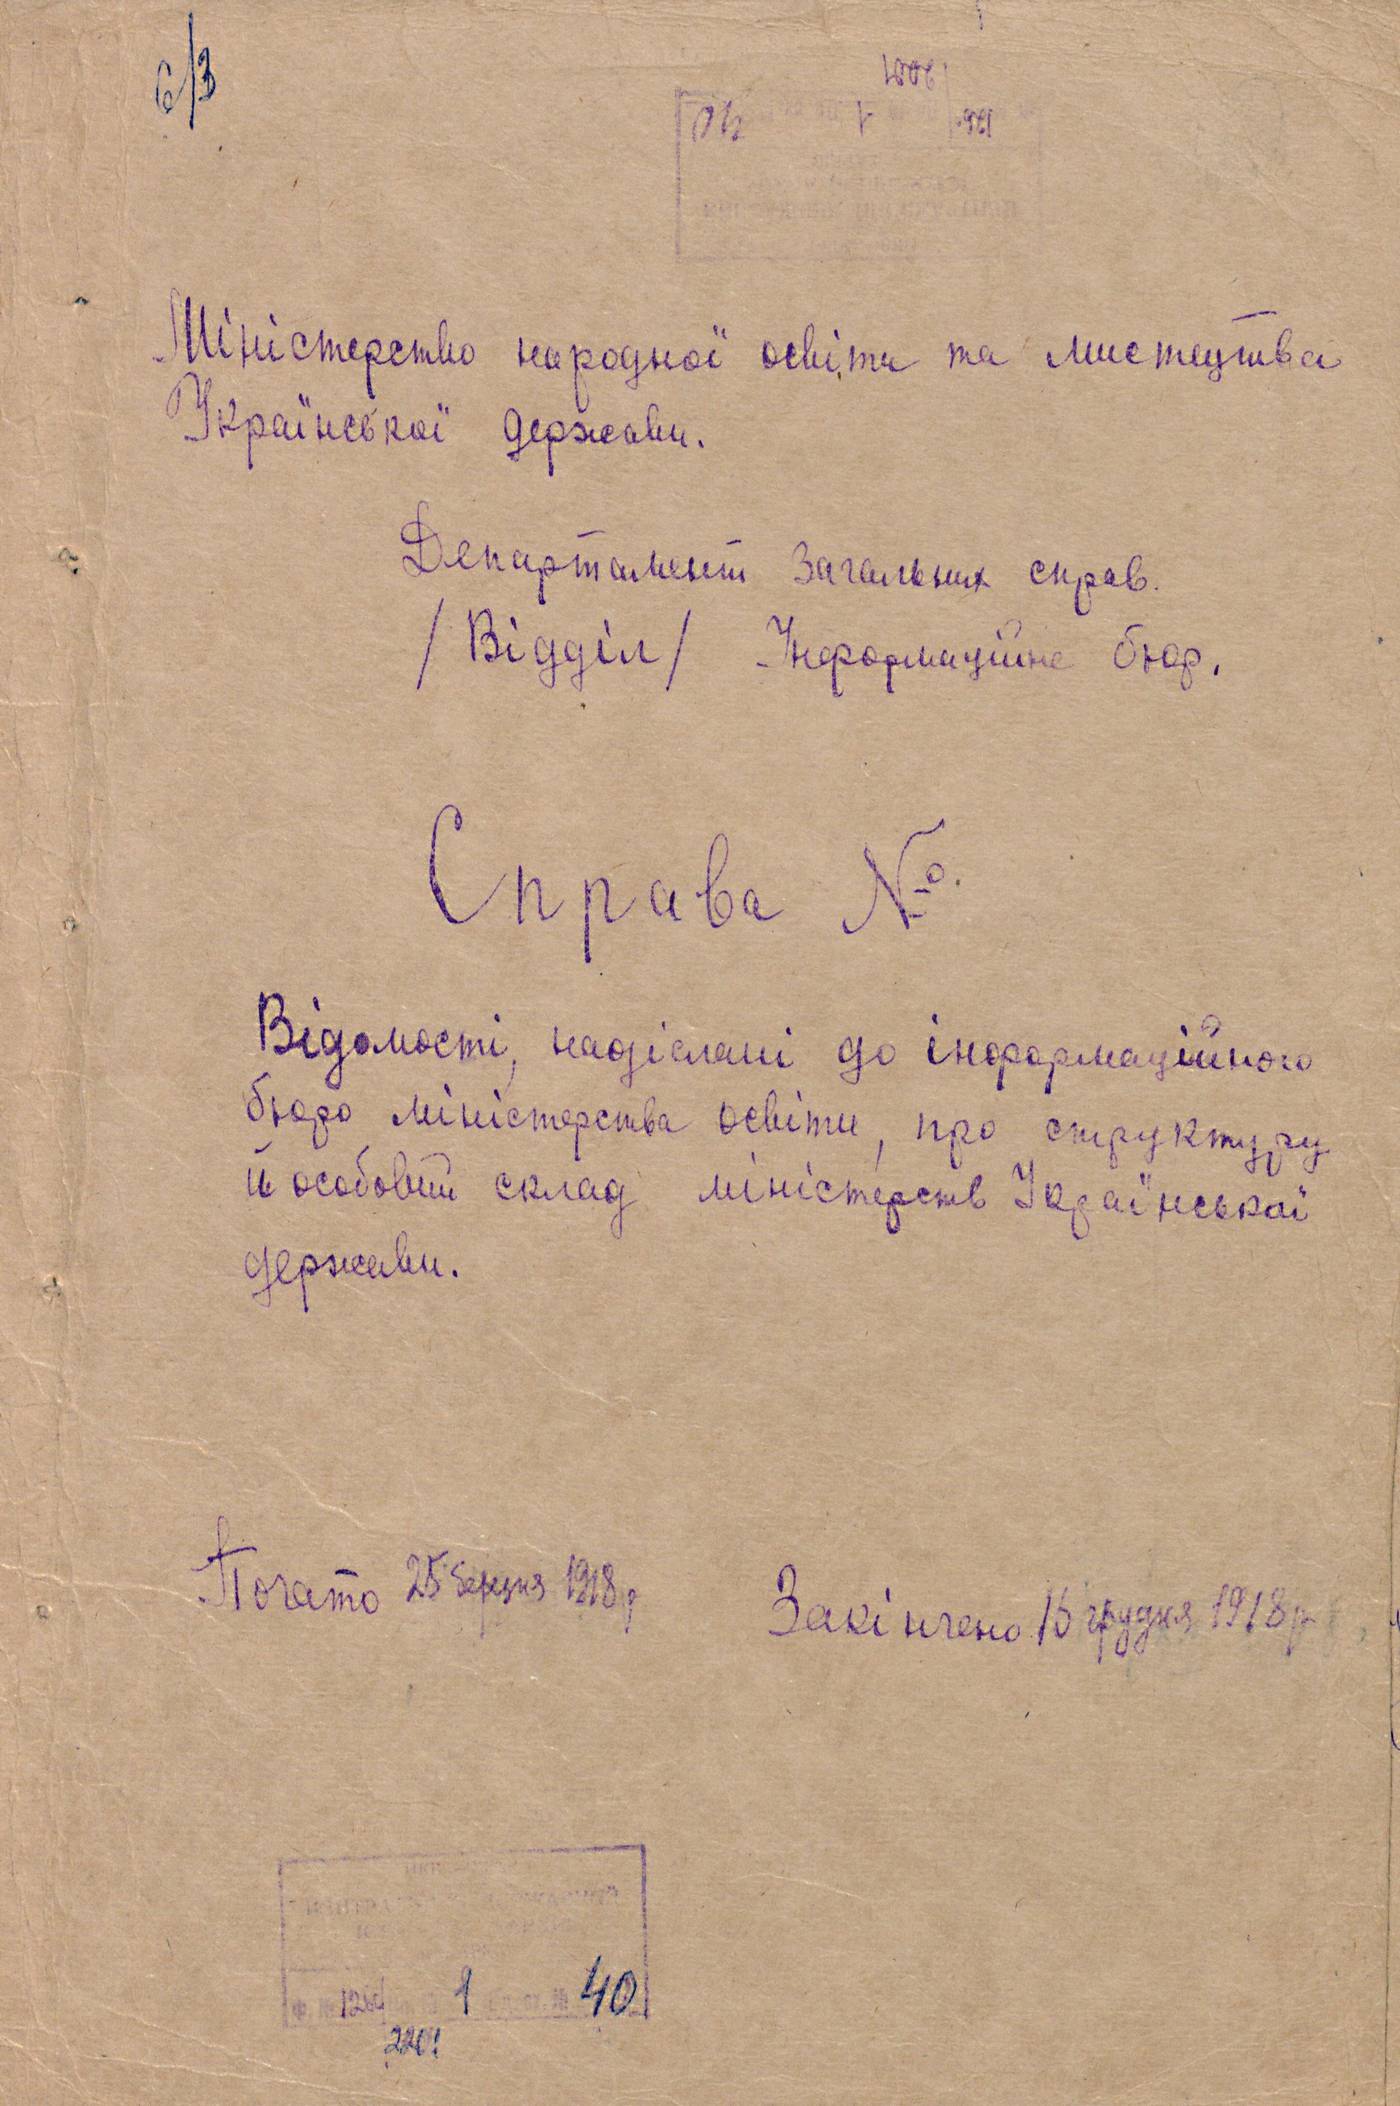 б/з
Міністерство народної освіти та мистецтва
Української держави.
Департамент загальних справ.
/Відділ/ Інформаційне бюр.
Справа №.
Відомості, надіслані до інформаційного
бюро міністерства освіти, про структуру
й особовий склад міністерств Української
держави.
Почато 25 березня 1918 р
Закінчено 16 грудня 1918 р
1 40
2201